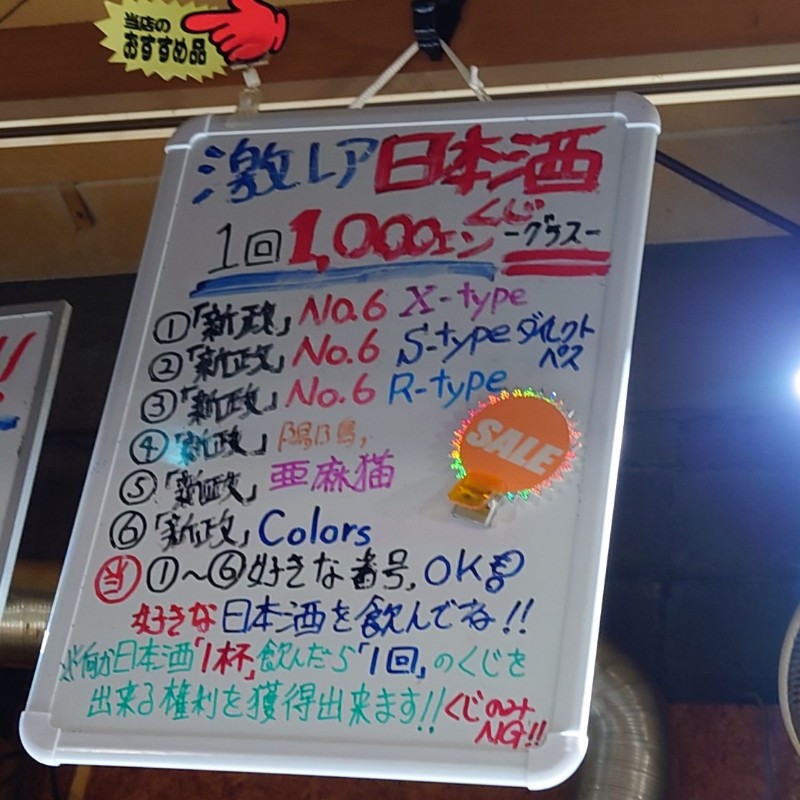 当店の
おすすめ品
激レア日本酒
1回1,000エンくじ -グラス-
①「新政」No.6 X-type
②「新政」No.6 S-type ダイレクトパス
③「新政」No.6 R-type
④「新政」陽乃鳥,
⑤「新政」亜麻猫
⑥「新政」Colors
SALE
当 ①~⑥好きな番号,OK!
好きな日本酒を飲んでね!!
※何か日本酒「1杯」飲んだら「1回」のくじを
出来る権利を獲得出来ます!!くじのみNG!!
!!